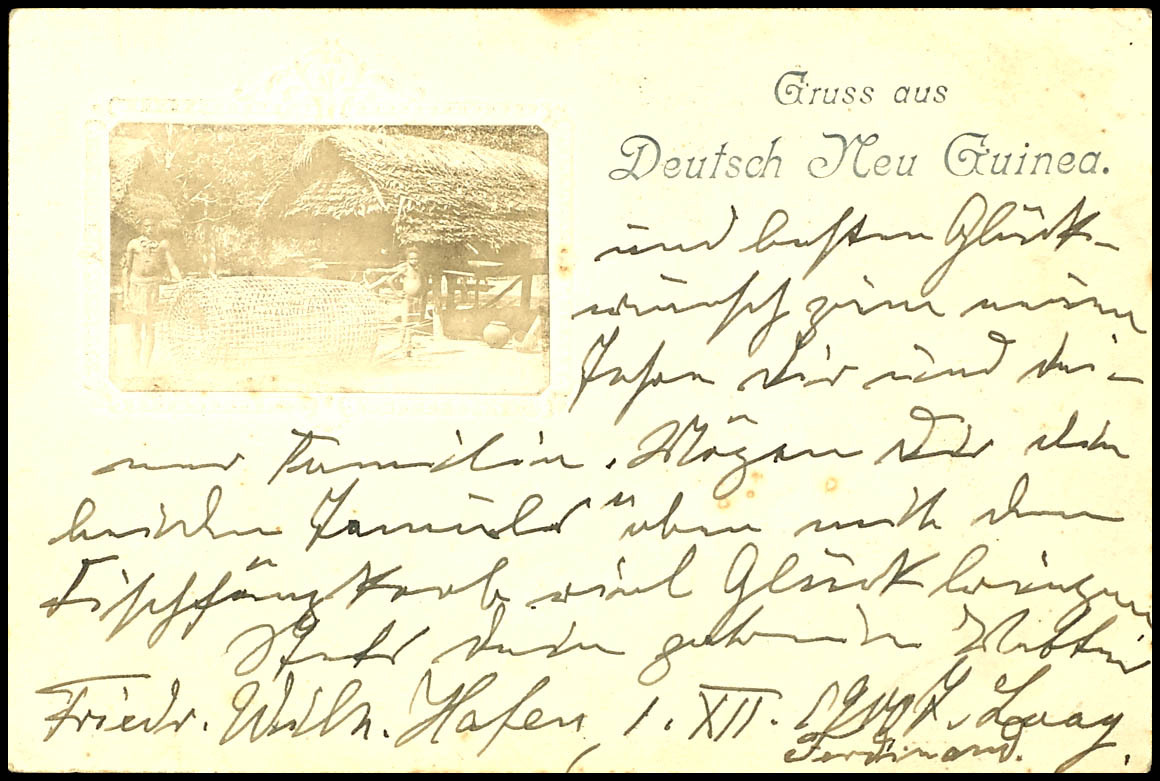 Gruss aus
Deutsch Neu Guinea.
und besten Glück-
wünsch zum neuen
Jahre Dir und dei-
ner Familie. Mögen Dir die
beiden oben mit dem
Fischfangkorb viel Glück bringen
Stets Dein getreuer
Friedr. Wilh. Hafen, 1. XII.
Ferdinand.